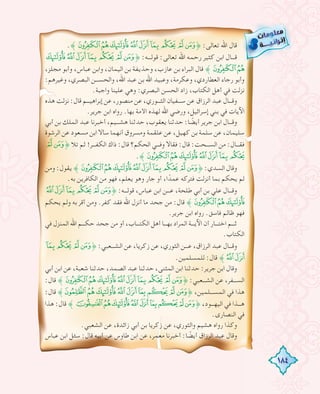 معلومات إثرائية
قال الله تعالى: ﴿ وَمَن لَّمْ يَحْكُم بِمَا أَنزَلَ اللَّهُ فَأُولَٰئِكَ هُمُ الْكَافِرُونَ ﴾.
قال ابن كثير رحمه الله تعالى: قوله: ﴿ وَمَن لَّمْ يَحْكُم بِمَا أَنزَلَ اللَّهُ فَأُولَٰئِكَ
هُمُ الْكَافِرُونَ ﴾ قال البراء بن عازب، وحذيفة بن اليمان، وابن عباس، وأبو مجلز،
وأبو رجاء العطاردي، وعكرمة، وعبيد الله بن عبد الله، والحسن البصري، وغيرهم:
نزلت في أهل الكتاب، زاد الحسن البصري: وهي علينا واجبة.
وقال عبد الرزاق عن سفيان الثوري، عن منصور، عن إبراهيم قال: نزلت هذه
الآيات في بني إسرائيل، ورضي الله لهذه الأمة بها. رواه ابن جرير.
وقال ابن جرير أيضًا: حدثنا يعقوب، حدثنا هشيم، أخبرنا عبد الملك بن أبي
سليمان، عن سلمة بن كهيل، عن علقمة ومسروق أنهما سألا ابن مسعود عن الرشوة
فقال: من السحت: قال: فقالا وفي الحكم؟ قال: ذاك الكفر! ثم تلا ﴿ وَمَن لَّمْ
يَحْكُم بِمَا أَنزَلَ اللَّهُ فَأُولَٰئِكَ هُمُ الْكَافِرُونَ ﴾.
وقال السدي: ﴿ وَمَن لَّمْ يَحْكُم بِمَا أَنزَلَ اللَّهُ فَأُولَٰئِكَ هُمُ الْكَافِرُونَ ﴾ يقول: ومن
لم يحكم بما أنزلت فتركه عمدًا، أو جار وهو يعلم، فهو من الكافرين به.
وقال علي بن أبي طلحة، عن ابن عباس، قوله: ﴿ وَمَن لَّمْ يَحْكُم بِمَا أَنزَلَ اللَّهُ
فَأُولَٰئِكَ هُمُ الْكَافِرُونَ ﴾ قال: من جحد ما أنزل الله فقد كفر. ومن أقر به ولم يحكم
فهو ظالم فاسق. رواه ابن جرير.
ثم اختار أن الآية المراد بها أهل الكتاب، أو من جحد حكم الله المنزل في
الكتاب.
وقال عبد الرزاق، عن الثوري، عن زكريا، عن الشعبي: ﴿ وَمَن لَّمْ يَحْكُم بِمَا
أَنزَلَ اللَّهُ ﴾ قال: للمسلمين.
وقال ابن جرير: حدثنا ابن المثنى، حدثنا عبد الصمد، حدثنا شعبة، عن ابن أبي
السفر، عن الشعبي: ﴿ وَمَن لَّمْ يَحْكُم بِمَا أَنزَلَ اللَّهُ فَأُولَٰئِكَ هُمُ الْكَافِرُونَ ﴾ قال:
هذا في المسلمين، ﴿ وَمَن لَّمْ يَحْكُم بِمَا أَنزَلَ اللَّهُ فَأُولَٰئِكَ هُمُ الظَّالِمُونَ ﴾ قال:
هذا في اليهود، ﴿ وَمَن لَّمْ يَحْكُم بِمَا أَنزَلَ اللَّهُ فَأُولَٰئِكَ هُمُ الْفَاسِقُونَ ﴾ قال: هذا
في النصارى.
وكذا رواه هشيم والثوري، عن زكريا بن أبي زائدة، عن الشعبي.
وقال عبد الرزاق أيضًا: أخبرنا معمر، عن ابن طاوس عن أبيه قال: سئل ابن عباس
١٨٤